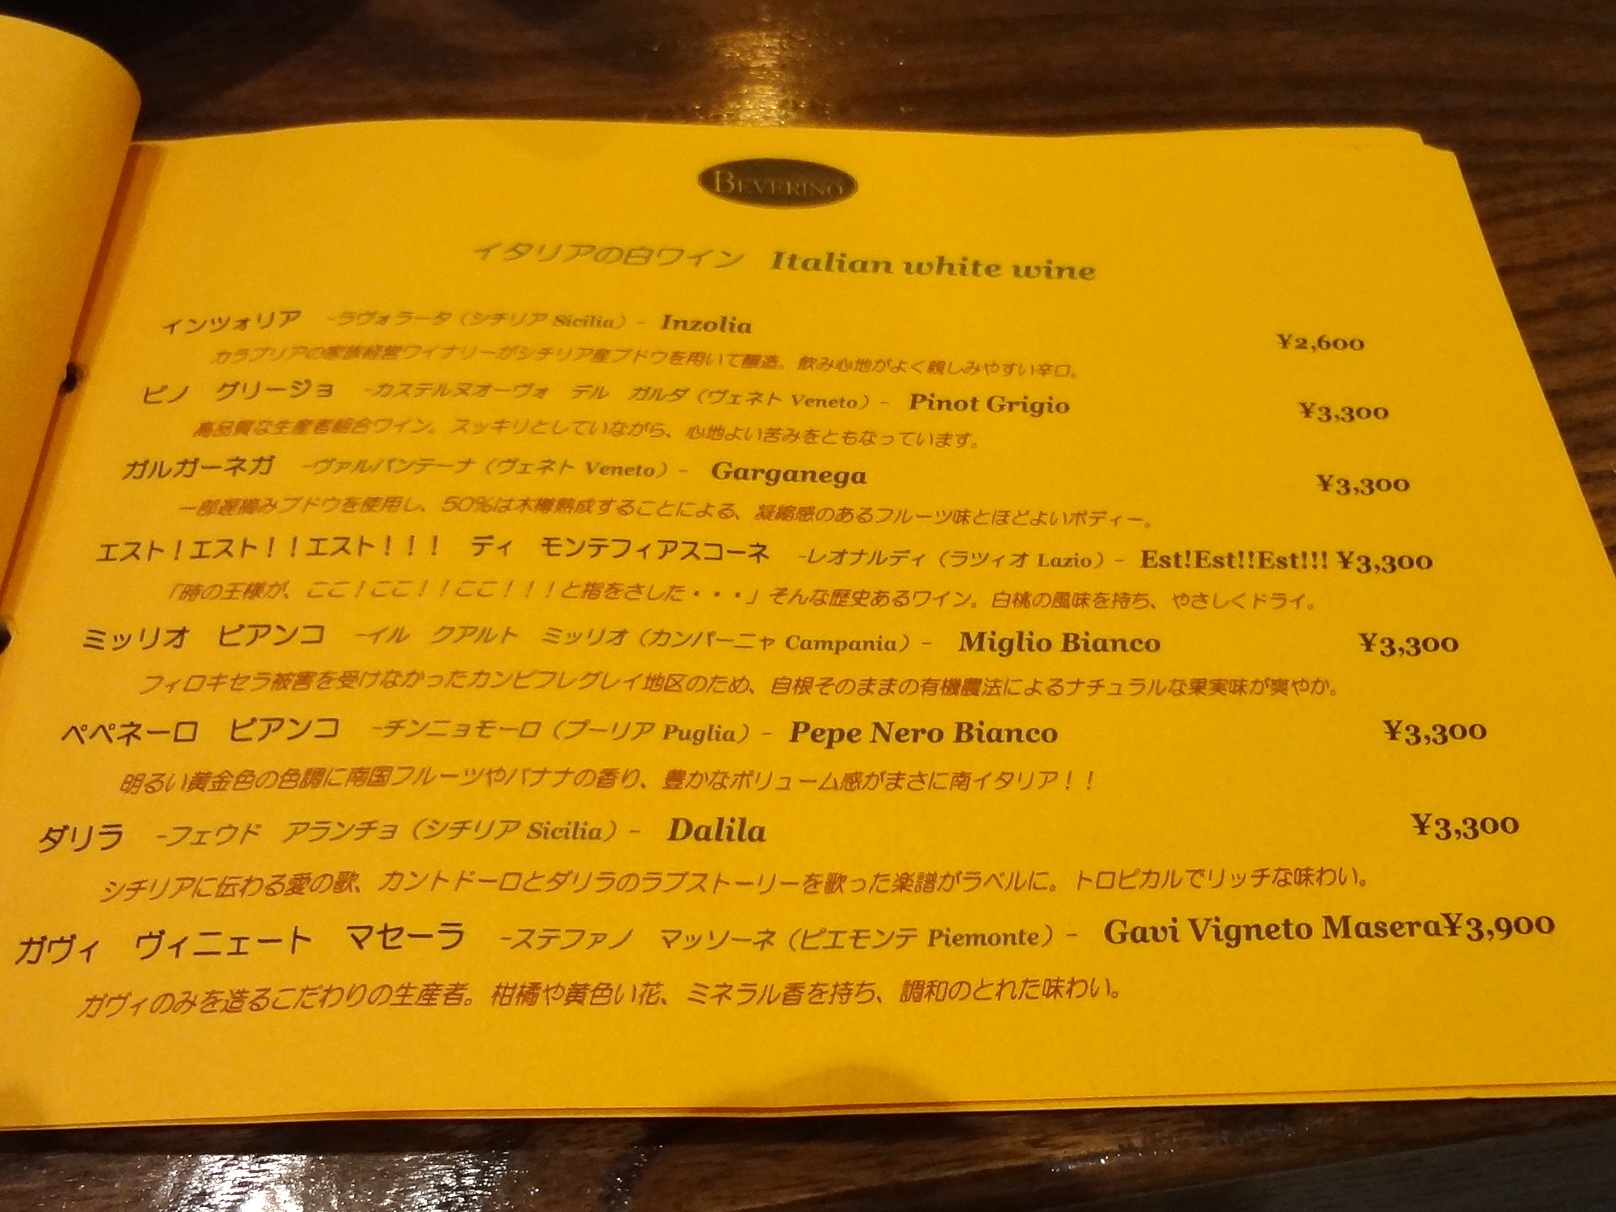 BEVERINO
イタリアの白ワイン Italian white wine
インツォリア -ラヴォラータ（シチリア Sicilia）- Inzolia ¥2,600
カラブリアの家族経営ワイナリーがシチリア産ブドウを用いて醸造。飲み心地がよく親しみやすい辛口。
ピノ グリージョ -カステルヌオーヴォ デル ガルダ（ヴェネト Veneto）- Pinot Grigio ¥3,300
高品質な生産者組合ワイン。スッキリとしていながら、心地よい苦みをともなっています。
ガルガーネガ -ヴァルパンテーナ（ヴェネト Veneto）- Garganega ¥3,300
一部遅摘みブドウを使用し、50%は木樽熟成することによる、凝縮感のあるフルーツ味とほどよいボディー。
エスト！エスト！！エスト！！！ ディ モンテフィアスコーネ -レオナルディ（ラツィオ Lazio）- Est!Est!!Est!!! ¥3,300
「時の王様が、ここ！ここ！！ここ！！！と指をさした・・・」そんな歴史あるワイン。白桃の風味を持ち、やさしくドライ。
ミッリオ ビアンコ -イル クアルト ミッリオ（カンパーニャ Campania）- Miglio Bianco ¥3,300
フィロキセラ被害を受けなかったカンピフレグレイ地区のため、自根そのままの有機農法によるナチュラルな果実味が爽やか。
ペペネーロ ビアンコ -チンニョモーロ（プーリア Puglia）- Pepe Nero Bianco ¥3,300
明るい黄金色の色調に南国フルーツやバナナの香り、豊かなボリューム感がまさに南イタリア！！
ダリラ -フェウド アランチョ（シチリア Sicilia）- Dalila ¥3,300
シチリアに伝わる愛の歌、カントドーロとダリラのラブストーリーを歌った楽譜がラベルに。トロピカルでリッチな味わい。
ガヴィ ヴィニェート マセーラ -ステファノ マッソーネ（ピエモンテ Piemonte）- Gavi Vigneto Masera¥3,900
ガヴィのみを造るこだわりの生産者。柑橘や黄色い花、ミネラル香を持ち、調和のとれた味わい。